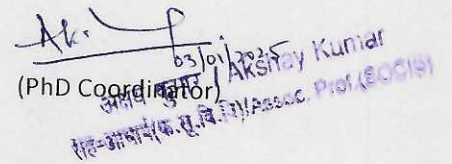 Ak.
03/01/2025
(PhD Coordinator)
अक्षय कुमार / Akshay Kumar
सह-आचार्य(क.सू.वि.वि)/Assoc. Prof.(SOCIS)